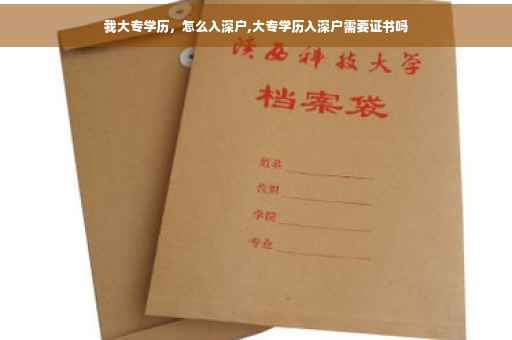 我大专学历，怎么入深户,大专学历入深户需要证书吗
陕西科技大学
档案袋
姓名
教职
学院
专业